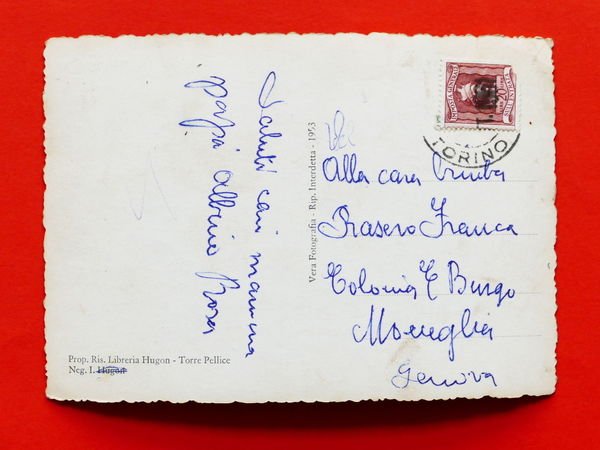 Saluti cari mamma
papà Albino Rosa
Prop. Ris. Libreria Hugon - Torre Pellice
Neg. I. Hugon
Vera Fotografia - Rip. Interdetta - 1953
Alla cara bimba
Frasero Franca
Colonia E Burgo
Moneglia
Genova
IMPOSTA GENERALE
TORINO